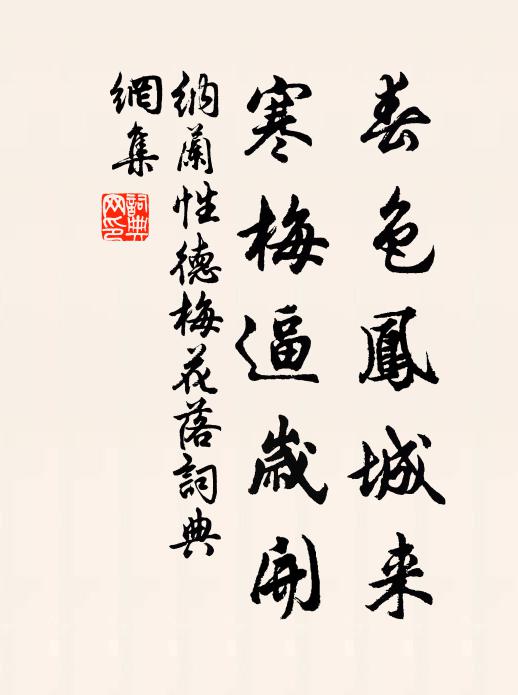 春色鳳城来
寒梅逼歳開
納蘭性德梅花落詞典
網集
詞典
网印